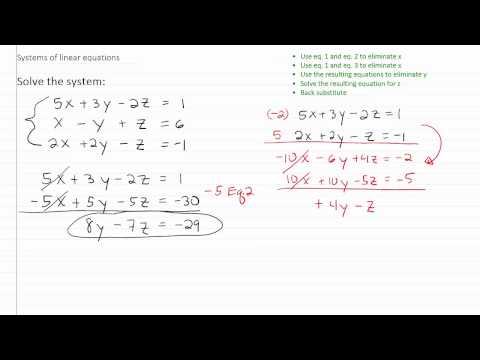 Systems of linear equations
Solve the system:
5x + 3y - 2z = 1
x - y + z = 6
2x + 2y - z = -1
5x + 3y - 2z = 1
-5x + 5y - 5z = -30
-5 Eq2
8y - 7z = -29
• Use eq. 1 and eq. 2 to eliminate x
• Use eq. 1 and eq. 3 to eliminate x
• Use the resulting equations to eliminate y
• Solve the resulting equation for z
• Back substitute
(-2) 5x + 3y - 2z = 1
5 2x + 2y - z = -1
-10x - 6y + 4z = -2
10x + 10y - 5z = -5
+ 4y - z